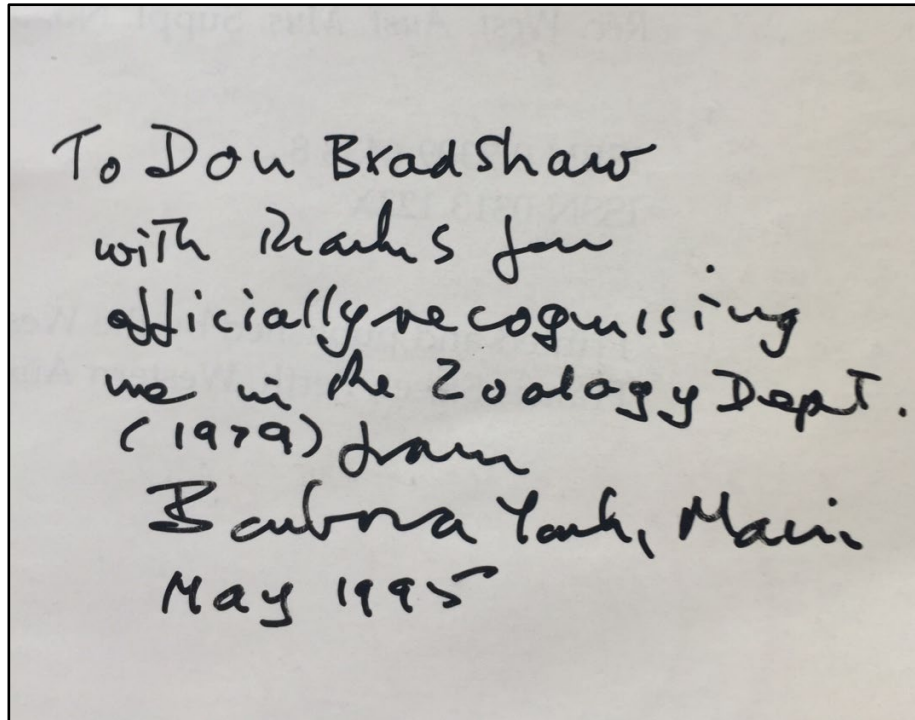 To Don Bradshaw
with thanks for
officially recognising
me in the Zoology Dept.
(1979) from
Barbara York Main
May 1995